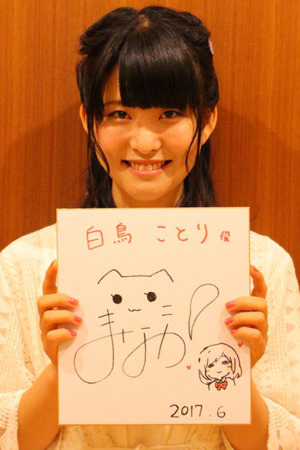 白鳥 ことり 役
まなか
2017.6